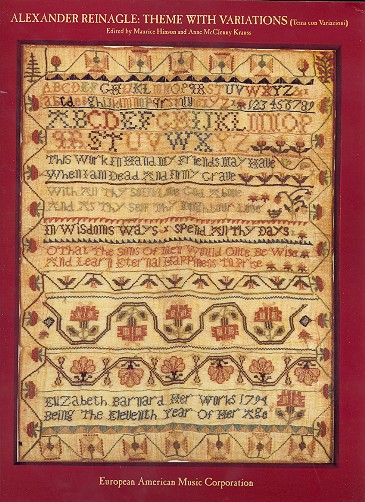 ALEXANDER REINAGLE: THEME WITH VARIATIONS (Tema con Variazioni)
Edited by Maurice Hinson and Anne McClenny Krauss
ABCDEFGHIJKLMNOPQRSTUVWXYZ
123456789
ABCDEFGHIJKLMNOP
QRSTUVWXYZ
This Work In Hand My Friends May Have
When I am Dead And In My Grave
With All Thy Soul Love God Above
And As Thy Self Thy Neighbour Love
In Wisdoms Ways Spend All Thy Days
O That The Sons Of Men Would Once Be Wise
And Learn Eternal Happiness To Prize
Elizabeth Barnard Her Work 1794
Being The Eleventh Year Of Her Age
European American Music Corporation